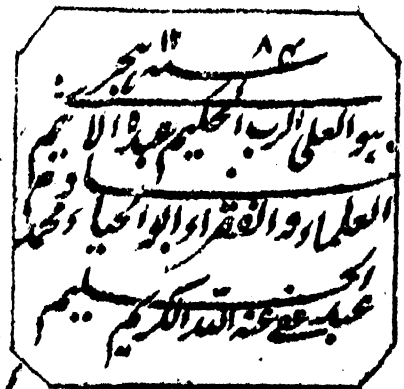 ۱۲۸۴ سنه هجریه
هو العلی الرب الحکیم عبده الاثیم
خادم
العلماء والفقراء ابو الحیاء محمد
عبد الحلیم عفی عنه الله الکریم